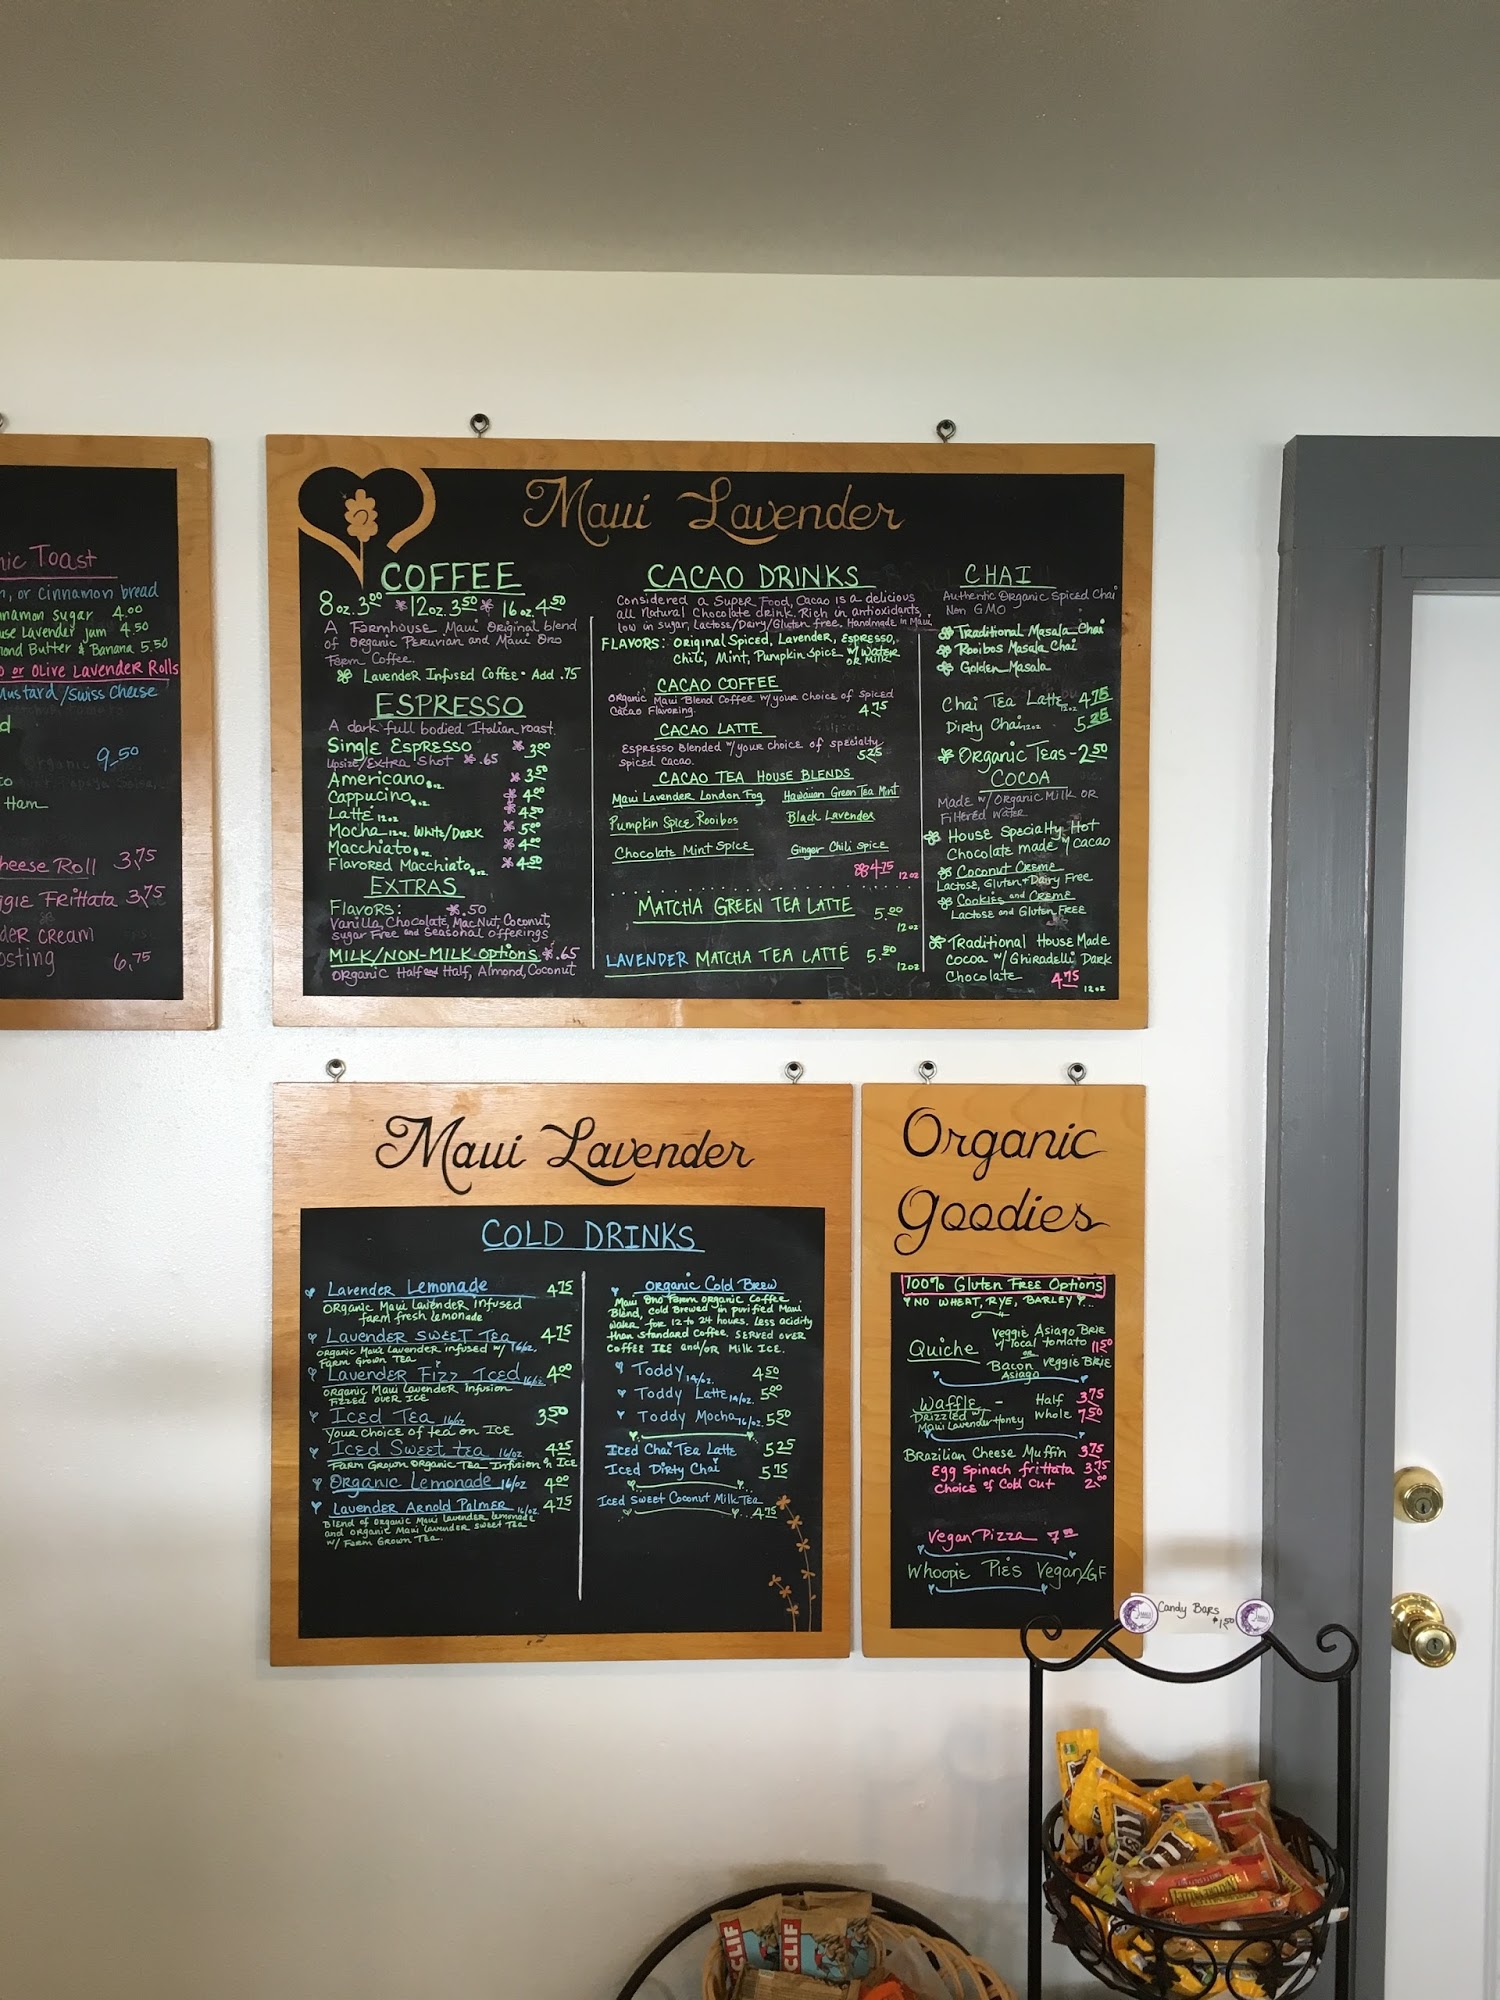 nic Toast
n, or Cinnamon bread
nnamon Sugar 4.00
use Lavender jam 4.50
mond Butter & Banana 5.50
o or Olive Lavender Rolls
Mustard/Swiss Cheese
d
9.50
Ham
heese Roll 3.75
ggie Frittata 3.75
der Cream
osting 6.75
Maui Lavender
COFFEE
8oz. 3.00 * 12oz. 3.50 * 16oz 4.50
A Farmhouse Maui Original blend
of Organic Peruvian and Maui Ono
Farm Coffee.
Lavender Infused Coffee - Add .75
ESPRESSO
A dark full bodied Italian roast.
Single Espresso * 3.00
Upsize/Extra Shot * .65
Americano 8oz. * 3.50
Cappucino 8oz. * 4.00
Latté 12oz * 4.50
Mocha 12oz. White/Dark * 5.00
Macchiato 8oz. * 4.00
Flavored Macchiato 8oz. * 4.50
EXTRAS
Flavors: * .50
Vanilla, Chocolate, MacNut, Coconut,
Sugar Free and Seasonal offerings
MILK/NON-MILK Options * .65
Organic Half and Half, Almond, Coconut
CACAO DRINKS
Considered a Super Food, Cacao is a delicious
all Natural Chocolate drink. Rich in antioxidants,
low in sugar, Lactose/Dairy/Gluten free. Handmade in Maui.
FLAVORS: Original Spiced, Lavender, Espresso,
Chili, Mint, Pumpkin Spice w/ Water
or Milk
CACAO COFFEE
Organic Maui Blend Coffee w/your choice of Spiced
Cacao Flavoring. 4.75
CACAO LATTE
Espresso Blended w/your choice of specialty
Spiced Cacao. 5.25
CACAO TEA HOUSE BLENDS
Maui Lavender London Fog Hawaiian Green Tea Mint
Pumpkin Spice Rooibos Black Lavender
Chocolate Mint Spice Ginger Chili Spice
4.75 12oz
MATCHA GREEN TEA LATTE 5.00
12oz
LAVENDER MATCHA TEA LATTE 5.50
12oz
CHAI
Authentic Organic Spiced Chai
Non GMO
Traditional Masala Chai
Rooibos Masala Chai
Golden Masala
Chai Tea Latte 12oz 4.75
Dirty Chai 12oz 5.25
Organic Teas - 2.50
COCOA
Made w/ Organic Milk or
Filtered Water
House Specialty Hot
Chocolate made w/ cacao
Coconut Creme
Lactose, Gluten + Dairy Free
Cookies and Creme
Lactose and Gluten Free
Traditional House Made
Cocoa w/ Ghiradelli Dark
Chocolate 4.75 12oz
Maui Lavender
COLD DRINKS
Lavender Lemonade 4.75
Organic Maui Lavender infused
farm fresh lemonade
Lavender Sweet Tea 4.75
Organic Maui Lavender infused w/ 16/oz.
Farm Grown Tea
Lavender Fizz Iced 16/oz 4.00
Organic Maui Lavender Infusion
Fizzed over Ice
Iced Tea 16/oz 3.50
Your choice of tea on Ice
Iced Sweet tea 16/oz 4.25
Farm Grown Organic Tea Infusion n Ice
Organic Lemonade 16/oz 4.00
Lavender Arnold Palmer 16/oz. 4.75
Blend of Organic Maui lavender lemonade
and Organic Maui lavender sweet Tea
w/ Farm Grown Tea.
Organic Cold Brew
Maui Ono Farm organic Coffee
Blend, Cold Brewed in purified Maui
Water for 12 to 24 hours. Less acidity
than standard Coffee. Served over
Coffee Ice and/or Milk Ice.
Toddy 14/oz. 4.50
Toddy Latte 14/oz. 5.00
Toddy Mocha 16/oz. 5.50
Iced Chai Tea Latte 5.25
Iced Dirty Chai 5.75
Iced Sweet Coconut Milk Tea
4.75
Organic
Goodies
100% Gluten Free Options
No Wheat, Rye, Barley...
Quiche Veggie Asiago Brie
w/ local tomato 11.50
or
Bacon Veggie Brie
Asiago
Waffle - Half 3.75
Drizzled w/ Maui Lavender Honey Whole 7.50
Brazilian Cheese Muffin 3.75
Egg Spinach frittata 3.75
Choice of Cold Cut 2.00
Vegan Pizza 7.00
Whoopie Pies Vegan/GF
Candy Bars
$1.50
CLIF
CLIF